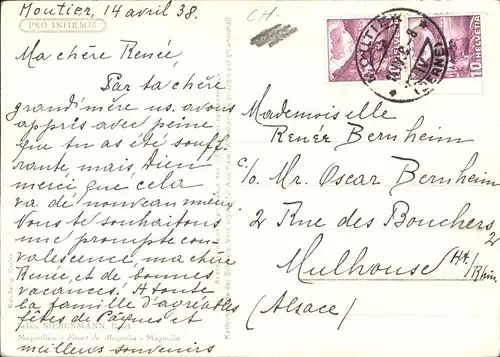 Moutier, 14 avril 38.
PRO INFIRMIS
CH-
Ma chère Renée,
Par ta chère
grand'mère ns. avons
appris avec peine
que tu as été souff-
rante, mais, Dieu
merci que cela
va de nouveau mieux
Nous te souhaitons
une prompte con-
valescence, ma chère
Renée, et de bonnes
vacances! A toute
la famille d'agréables
fêtes de Pâques et
meilleurs souvenirs
SIEBENMANN,
Magnolien - Fleurs de Magnolia - Magnolia
HELVETIA
10
HELVETIA
10
MOUTIER
Mademoiselle
Renée Bernheim
c/o Mr. Oscar Bernheim
2 Rue des Bouchers
2
Mulhouse Ht./Rhin.
(Alsace)